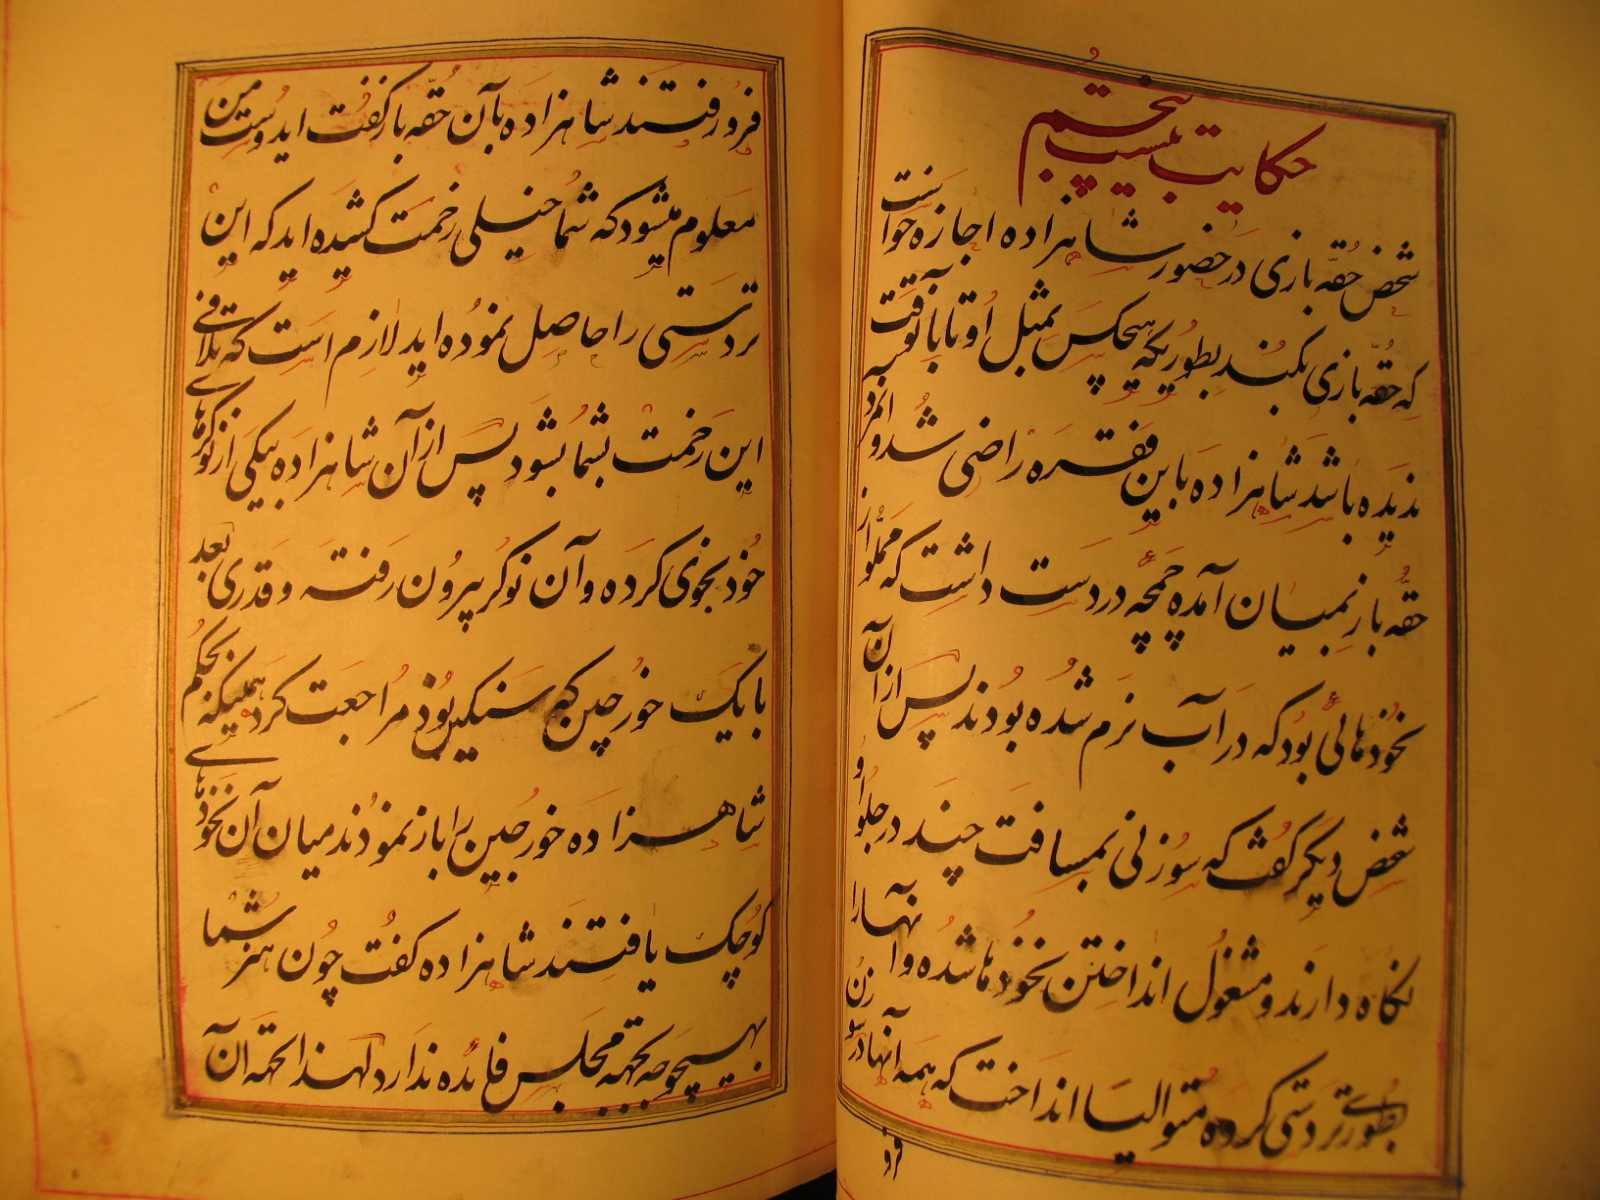 حکایت بیست پنجم
شخص حقه بازی در حضور شاهزاده اجازه خواست
که حقه بازی بکند بطوریکه هیچکس بمثل او تا بآنوقت
ندیده باشد شاهزاده باین فقره راضی شد و آنمرد
حقه باز بمیان آمده چمچه در دست داشت که مملو از
نخودهائی بود که در آب نرم شده بودند پس از آن
شخص دیگر گفت که سوزنی بمسافت چند در جلو او
نگاه دارند و مشغول انداختن نخودها شده و آنها را
بطوری تردستی کرده متوالیا انداخت که همه آنها در سوزن
فرو
فرو رفتند شاهزاده بآن حقه باز گفت ایدوست من
معلوم میشود که شما خیلی زحمت کشیده اید که این
تردستی را حاصل نموده اید لازم است که تلافی
این زحمت بشما بشود پس از آن شاهزاده بیکی از نوکرهای
خود نجوی کرده و آن نوکر بیرون رفته و قدری بعد
با یک خورجین که سنگین بود مراجعت کرد همینکه بحکم
شاهزاده خورجین را باز نمودند میان آن نخودهای
کوچک یافتند شاهزاده گفت چون هنر شما
بهیچوجه بجهة مجلس فایده ندارد لهذا بجهة آن